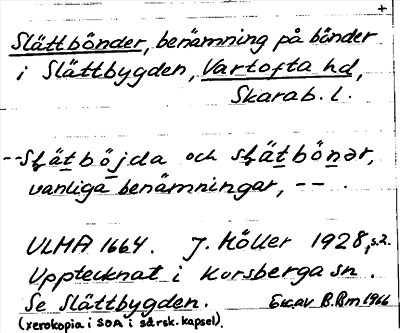 +
Slättbönder, benämning på bönder
i Slättbygden, Vartofta hd,
Skarab. l.
--Słätböjda och słätbönər,
vanliga benämningar, -- .
ULMA 1664. J. Höller 1928, s.2.
Upptecknat i Korsberga sn.
Se Slättbygden. Exc. av B.Bm 1966
(xerokopia i SOA i särsk. kapsel).